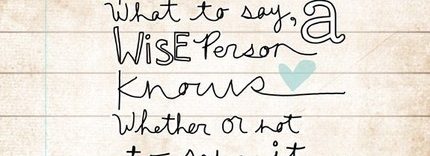 What to say, a
WiSE Person
Knows
Whether or not
it